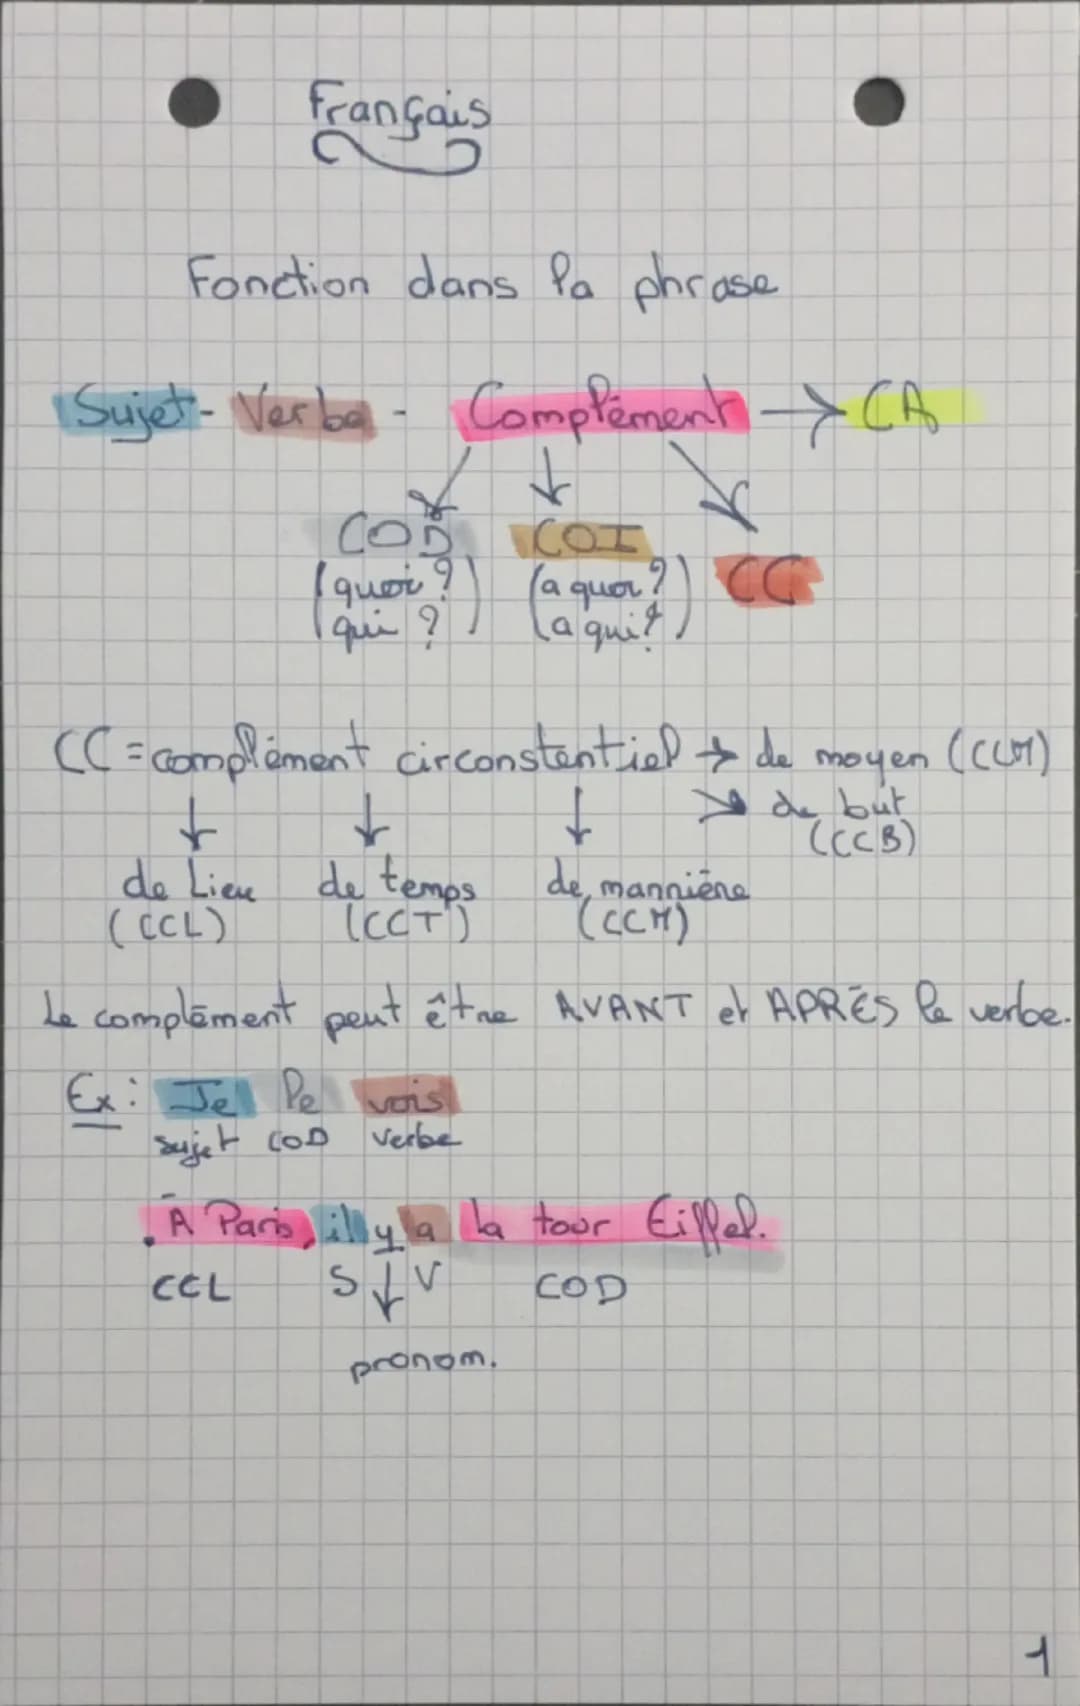 Français
Fonction dans la phrase
Sujet - Verbe - Complément → CA
COD COI CC
(quoi ? qui ?) (a quoi ? a qui ?)
CC = complément circonstentiel → de moyen (CCM)
→ de but
(CCB)
de Lieu de temps de mannière
(CCL) (CCT) (CCM)
Le complément peut être AVANT et APRÈS le verbe.
Ex : Je le vois
sujet COD verbe
. À Paris, il y a la tour Eiffel.
CCL S ↓ V COD
pronom.
1